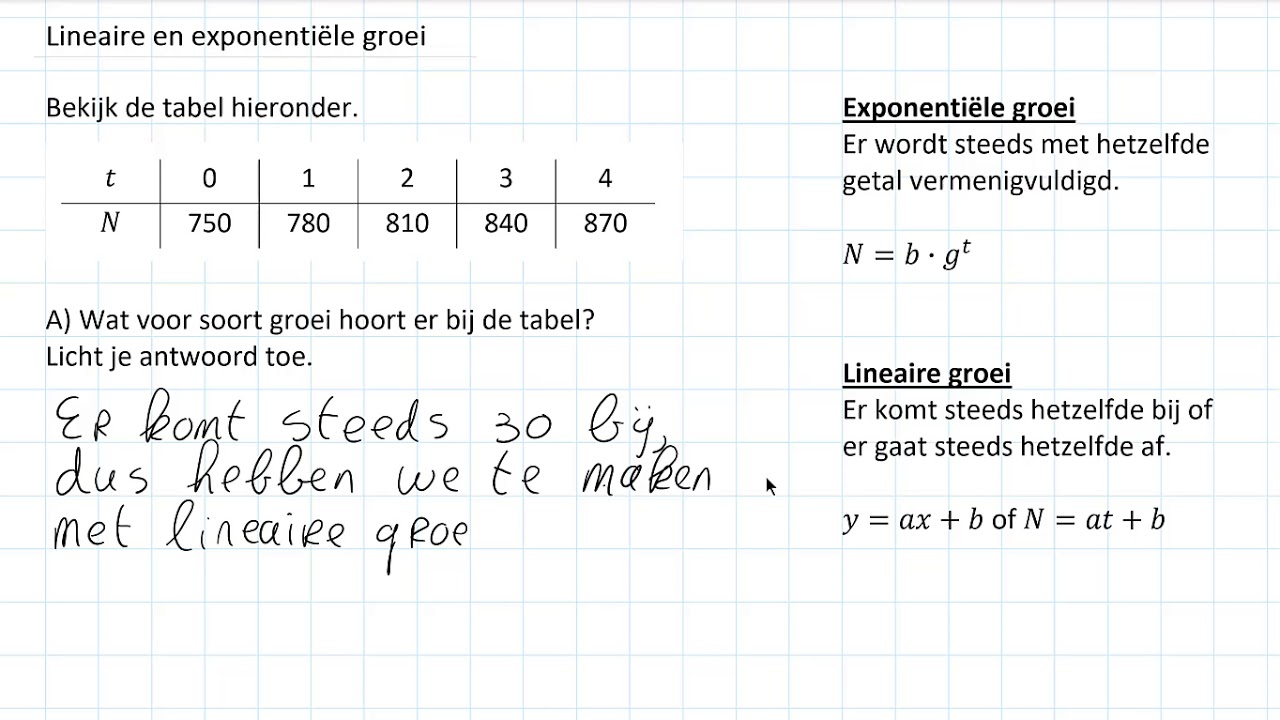 Lineaire en exponentiële groei
Bekijk de tabel hieronder.
t 0 1 2 3 4
N 750 780 810 840 870
A) Wat voor soort groei hoort er bij de tabel?
Licht je antwoord toe.
Er komt steeds 30 bij,
dus hebben we te maken
met lineaire groe
Exponentiële groei
Er wordt steeds met hetzelfde
getal vermenigvuldigd.
N = b · g^t
Lineaire groei
Er komt steeds hetzelfde bij of
er gaat steeds hetzelfde af.
y = ax + b of N = at + b